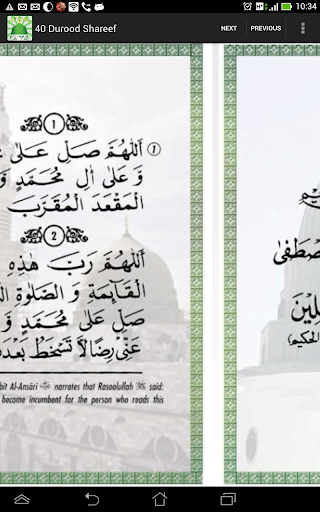 10:34
40 Durood Shareef
NEXT
PREVIOUS
١
اَللّٰهُمَّ صَلِّ عَلٰى
وَ عَلٰى اٰلِ مُحَمَّدٍ وَّ
الْمَقْعَدَ الْمُقَرَّبَ
٢
اَللّٰهُمَّ رَبَّ هٰذِهِ
الْقَآئِمَةِ وَ الصَّلٰوةِ
صَلِّ عَلٰى مُحَمَّدٍ وَّ
عَنِّىْ رِضًا لَّا تَسْخَطُ بَعْدَ
bit Al-Ansāri narrates that Rasoolullah said:
become incumbent for the person who reads this
صْطَفٰى
لِيْنَ
الحكيم)